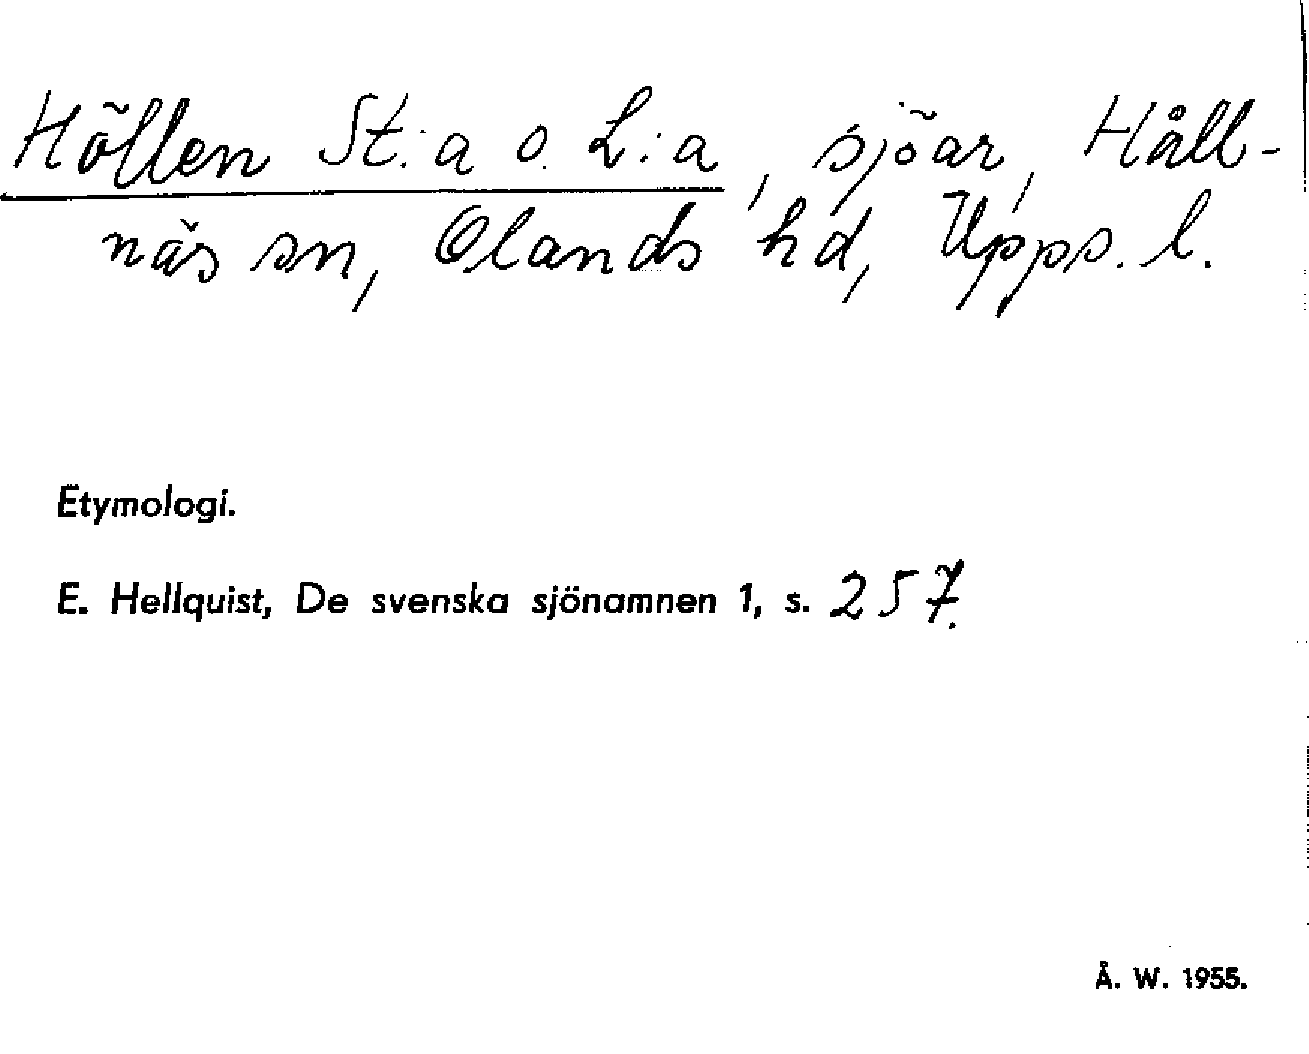 Höllen St:a o. L:a, sjöar, Håll-
näs sn, Olands hd, Upps. l.
Etymologi.
E. Hellquist, De svenska sjönamnen 1, s. 257.
Å. W. 1955.